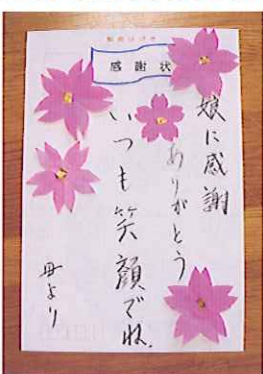 郵便はがき
感謝状
娘に感謝
ありがとう
いつも笑顔でね、
母より